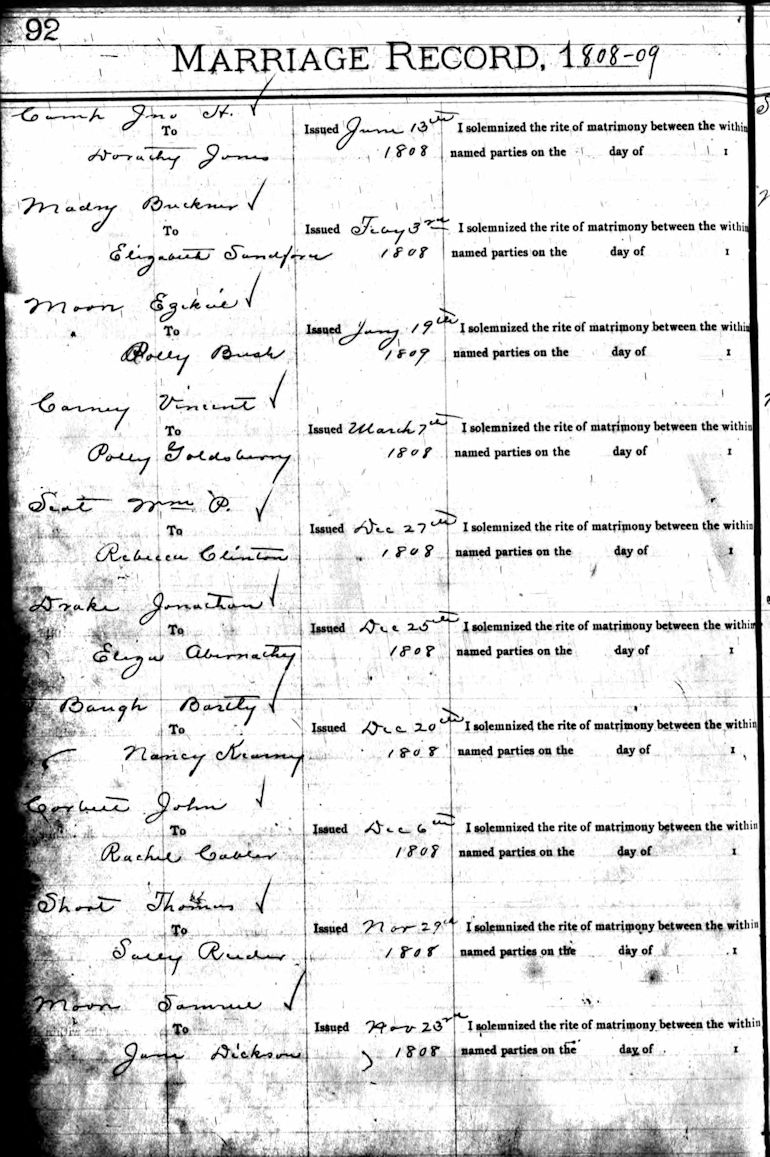 92
MARRIAGE RECORD, 1808-09
Camp Jno H.
To
Issued June 13th I solemnized the rite of matrimony between the within
Dorathy Jones 1808 named parties on the day of 1
Madry Buckner
To
Issued Feby 3rd I solemnized the rite of matrimony between the within
Elizabeth Sandford 1808 named parties on the day of 1
Moon Ezikiel
To
Issued Jany 19th I solemnized the rite of matrimony between the within
Polly Bush 1809 named parties on the day of 1
Carney Vincent
To
Issued March 7th I solemnized the rite of matrimony between the within
Polly Goldsberry 1808 named parties on the day of 1
Scot Wm P.
To
Issued Dec 27th I solemnized the rite of matrimony between the within
Rebecca Clinton 1808 named parties on the day of 1
Drake Jonathan
To
Issued Dec 25th I solemnized the rite of matrimony between the within
Eliza Abernathy 1808 named parties on the day of 1
Baugh Bartly
To
Issued Dec 20th I solemnized the rite of matrimony between the within
Nancy Kearney 1808 named parties on the day of 1
Corbett John
To
Issued Dec 6th I solemnized the rite of matrimony between the within
Rachel Cabler 1808 named parties on the day of 1
Short Thomas
To
Issued Nov 29th I solemnized the rite of matrimony between the within
Sally 1808 named parties on the day of 1
Moon Samuel
To
Issued Nov 23rd I solemnized the rite of matrimony between the within
Jane Dickson 1808 named parties on the day of 1